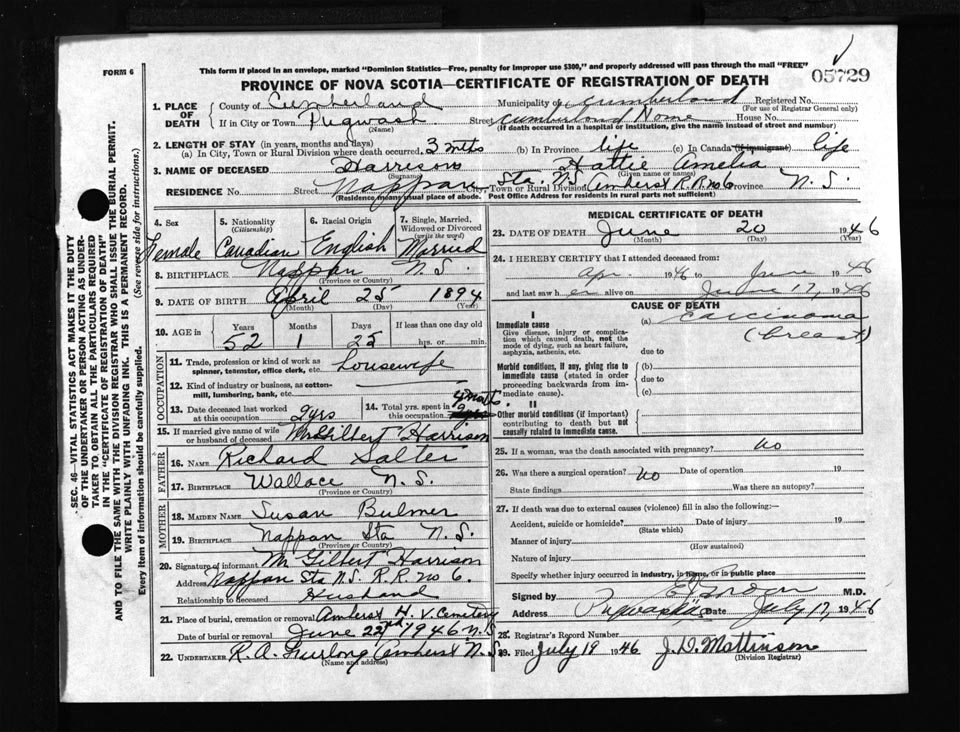 FORM 6
This form if placed in an envelope, marked "Dominion Statistics—Free, penalty for improper use $300," and properly addressed will pass through the mail "FREE"
05729
PROVINCE OF NOVA SCOTIA—CERTIFICATE OF REGISTRATION OF DEATH
1. PLACE OF DEATH County of Cumberland Municipality of Cumberland Registered No.
(For use of Registrar General only)
If in City or Town Pugwash Street Cumberland Home House No.
(Name) (If death occurred in a hospital or institution, give the name instead of street and number)
2. LENGTH OF STAY (in years, months and days)
(a) In City, Town or Rural Division where death occurred. 3 mths (b) In Province life (c) In Canada (if immigrant) life
3. NAME OF DECEASED Harrison Hattie Amelia
(Surname) (Given name or names)
RESIDENCE No. Street Nappan Sta. N.S. City, Town or Rural Division Amherst R.R. no 6 N.S.
(Residence means usual place of abode. Post Office Address for residents in rural parts not sufficient)
4. Sex 5. Nationality (Citizenship) 6. Racial Origin 7. Single, Married, Widowed or Divorced (write the word)
Female Canadian English Married
8. BIRTHPLACE Nappan N.S.
(Province or Country)
9. DATE OF BIRTH April 25 1894
(Month) (Day) (Year)
10. AGE in Years Months Days If less than one day old
52 1 25 hrs. or min.
OCCUPATION
11. Trade, profession or kind of work as spinner, teamster, office clerk, etc. Housewife
12. Kind of industry or business, as cotton-mill, lumbering, bank, etc.
13. Date deceased last worked at this occupation 2 yrs 14. Total yrs. spent in this occupation
15. If married give name of wife or husband of deceased Gilbert Harrison
FATHER
16. NAME Richard Salter
17. BIRTHPLACE Wallace N.S.
(Province or Country)
MOTHER
18. MAIDEN NAME Susan Bulmer
19. BIRTHPLACE Nappan Sta N.S.
(Province or Country)
20. Signature of informant M. Gilbert Harrison
Address Nappan Sta N.S. R.R. no 6.
Relationship to deceased Husband
21. Place of burial, cremation or removal Amherst H. V. Cemetery
Date of burial or removal June 22nd 1946 N.S.
22. UNDERTAKER R. A. Furlong Amherst N.S.
(Name and address)
MEDICAL CERTIFICATE OF DEATH
23. DATE OF DEATH June 20 1946
(Month) (Day) (Year)
24. I HEREBY CERTIFY that I attended deceased from:
Apr. 1946 to June 1946
and last saw h er alive on June 17, 1946
CAUSE OF DEATH
I
Immediate cause
Give disease, injury or complication which caused death, not the mode of dying, such as heart failure, asphyxia, asthenia, etc.
(a) Carcinoma
(breast)
due to
Morbid conditions, if any, giving rise to immediate cause (stated in order proceeding backwards from immediate cause).
(b)
due to
(c)
II
Other morbid conditions (if important) contributing to death but not causally related to immediate cause.
25. If a woman, was the death associated with pregnancy? No
26. Was there a surgical operation? No Date of operation 19
State findings Was there an autopsy?
27. If death was due to external causes (violence) fill in also the following:—
Accident, suicide or homicide? Date of injury 19
(State which)
Manner of injury
(How sustained)
Nature of injury
Specify whether injury occurred in industry, in home, or in public place
Signed by M.D.
Address Pugwash Date July 17, 1946
28. Registrar's Record Number
29. Filed July 19 1946 J. D. Mattinson
(Division Registrar)
SEC. 46—VITAL STATISTICS ACT MAKES IT THE DUTY
OF THE UNDERTAKER OR PERSON ACTING AS UNDER-
TAKER TO OBTAIN ALL THE PARTICULARS REQUIRED
IN THE "CERTIFICATE OF REGISTRATION OF DEATH"
AND TO FILE THE SAME WITH THE DIVISION REGISTRAR WHO SHALL ISSUE THE BURIAL PERMIT.
WRITE PLAINLY WITH UNFADING INK. THIS IS A PERMANENT RECORD.
Every item of information should be carefully supplied. (See reverse side for instructions.)